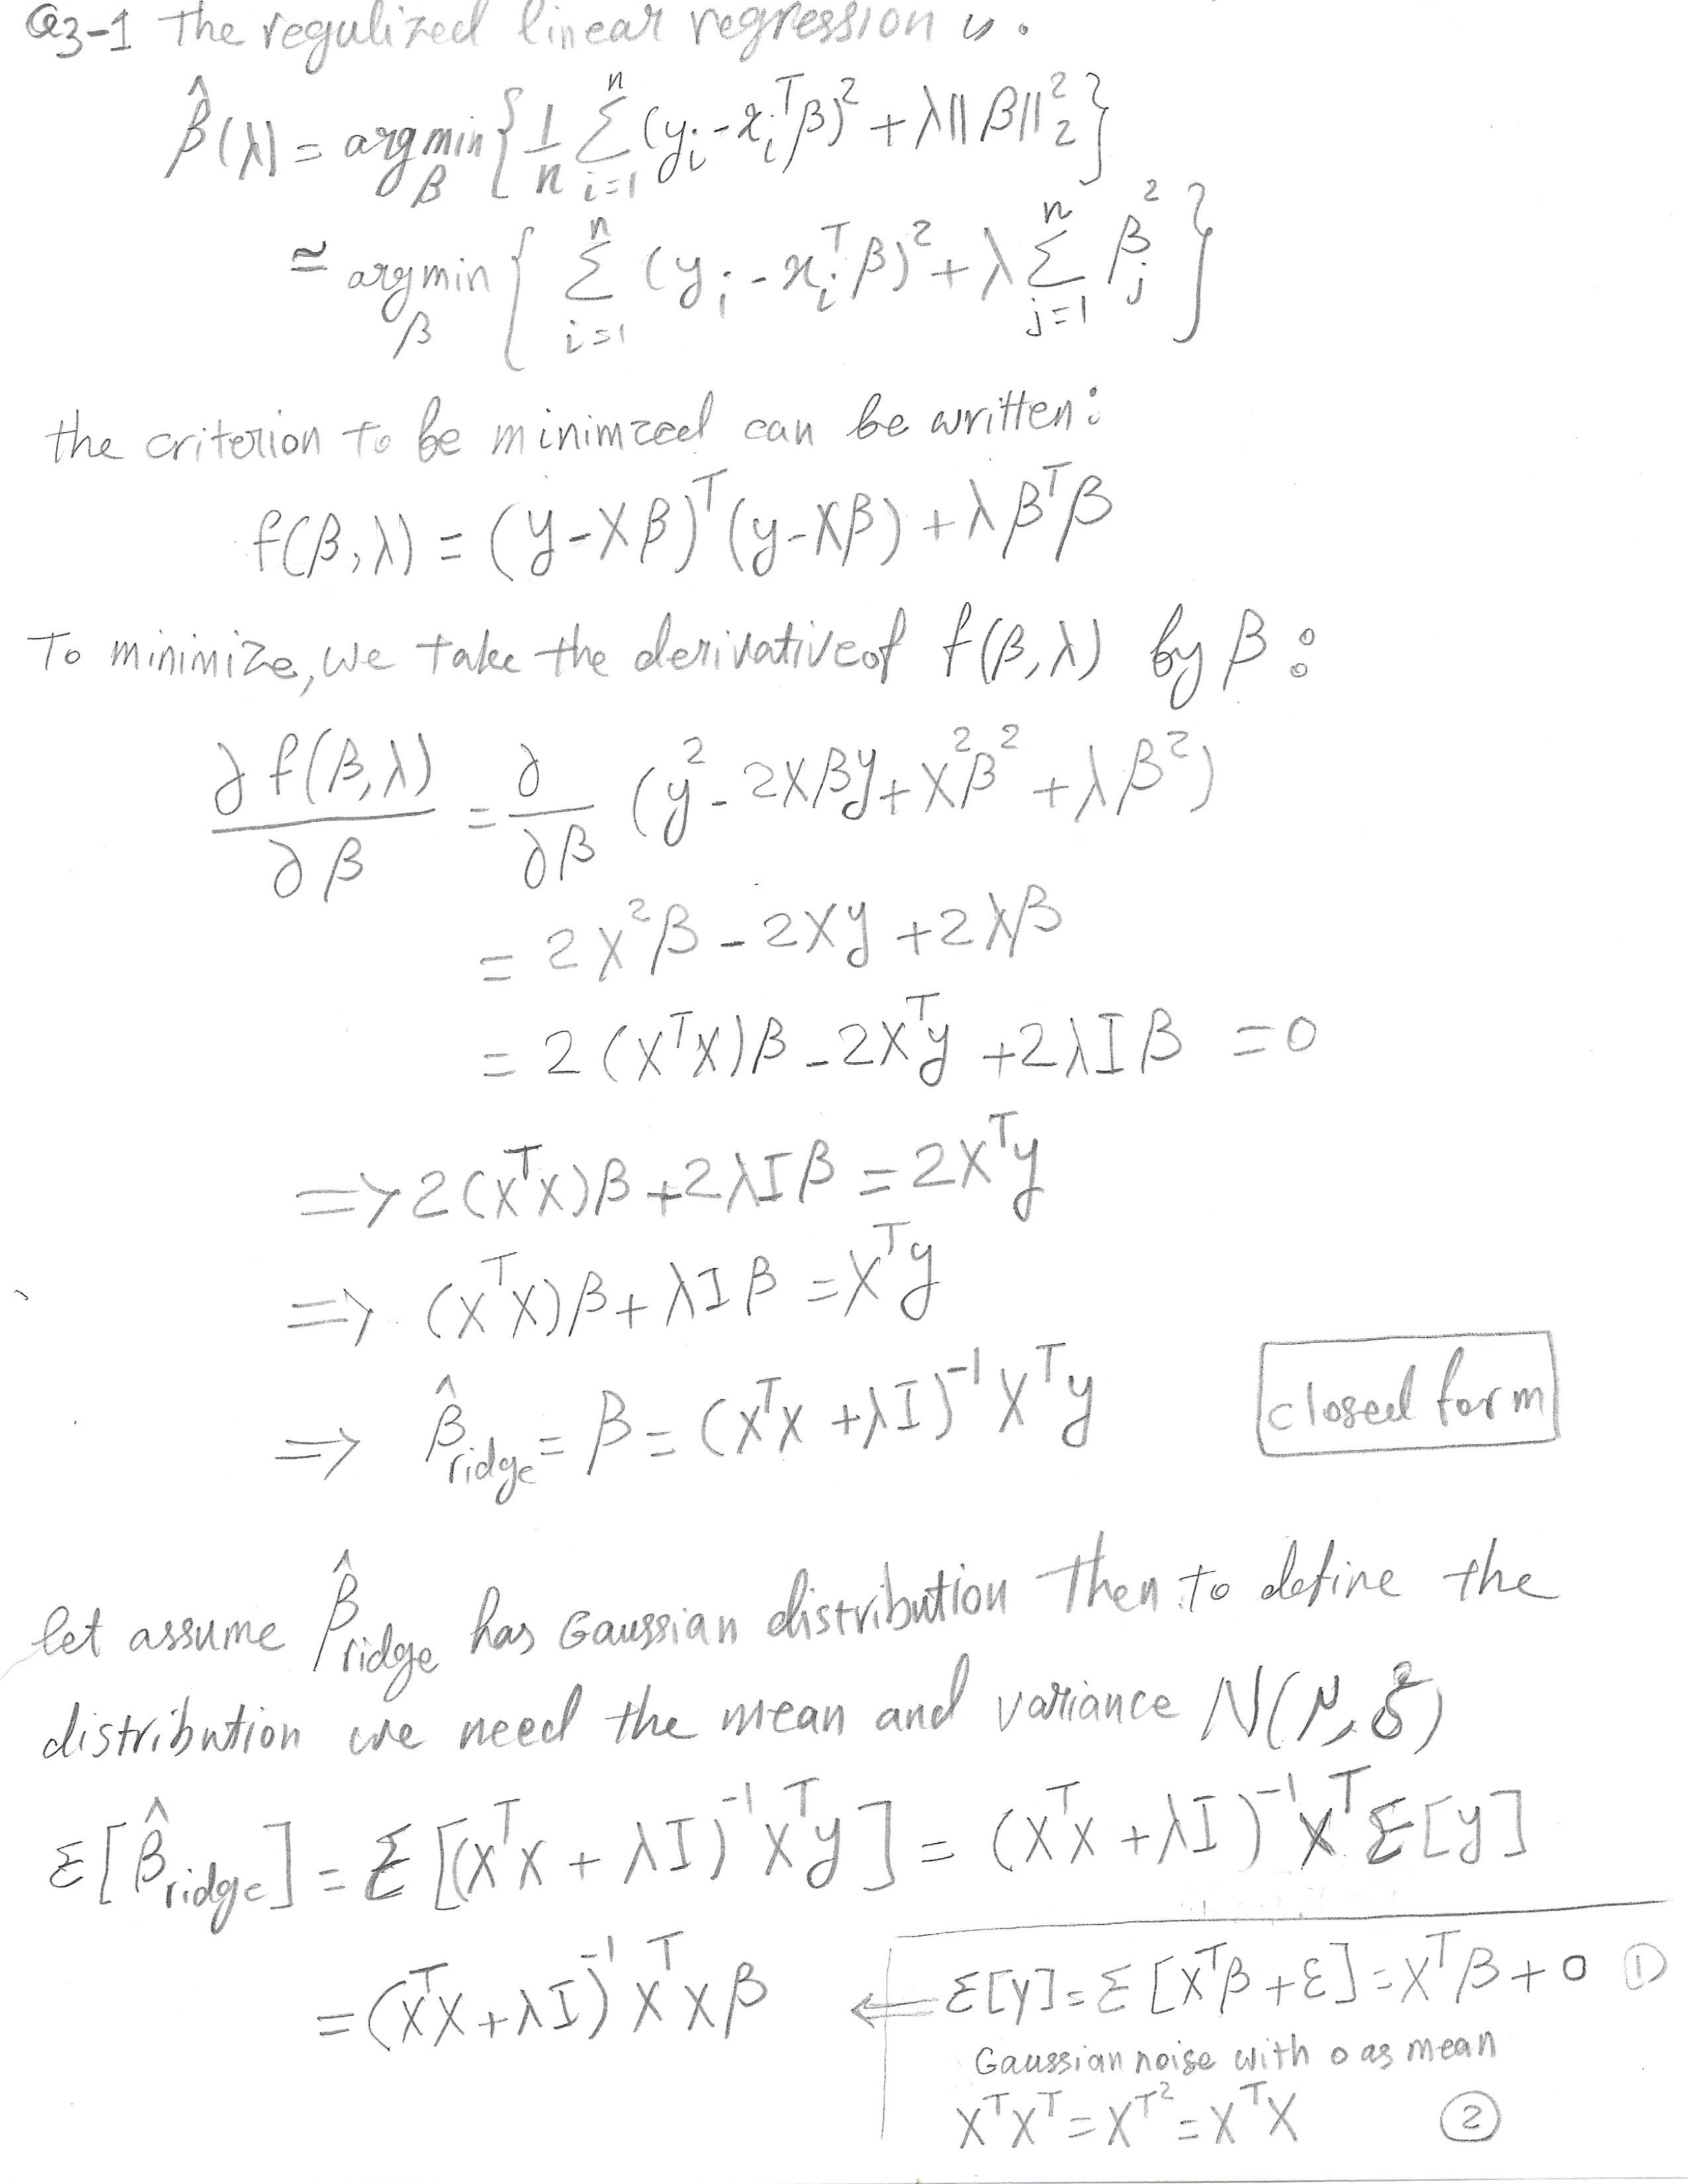 Q3-1 The regulized linear regression is :
β̂(λ) = argmin_β { 1/n Σ_{i=1}^{n} (y_i - x_i^T β)^2 + λ||β||_2^2 }
≃ argmin_β { Σ_{i=1}^{n} (y_i - x_i^T β)^2 + λ Σ_{j=1}^{n} β_j^2 }
the criterion to be minimzed can be written:
f(β,λ) = (y-Xβ)^T (y-Xβ) + λ β^T β
To minimize, we take the derivative of f(β,λ) by β:
∂f(β,λ)/∂β = ∂/∂β (y^2 - 2Xβy + X^2 β^2 + λβ^2)
= 2X^2 β - 2Xy + 2λβ
= 2(X^T X)β - 2X^T y + 2λIβ = 0
=> 2(X^T X)β + 2λIβ = 2X^T y
=> (X^T X)β + λIβ = X^T y
=> β̂_ridge = β = (X^T X + λI)^{-1} X^T y closed form
let assume β̂_ridge has Gaussian distribution then to define the
distribution we need the mean and variance N(μ, δ^2)
Ɛ[β̂_ridge] = Ɛ[(X^T X + λI)^{-1} X^T y] = (X^T X + λI)^{-1} X^T Ɛ[y]
= (X^T X + λI)^{-1} X^T X β ← Ɛ[y] = Ɛ[X^T β + ε] = X^T β + 0 ①
Gaussian noise with 0 as mean
X^T X^T = X^{T^2} = X^T X ②